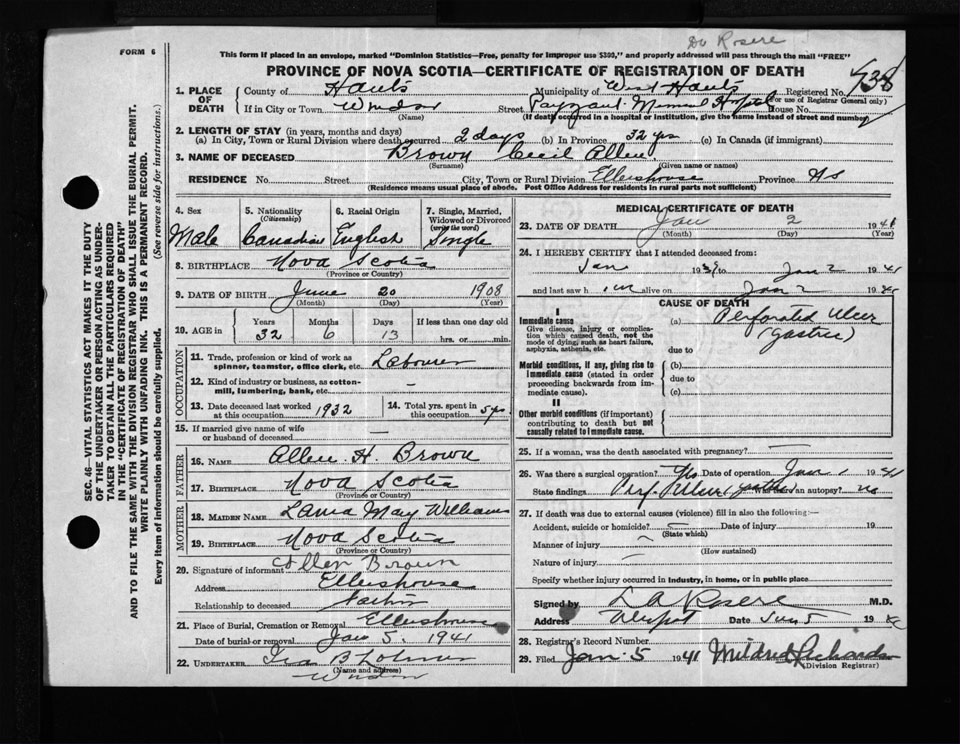 FORM 6
Dr Rosere
This form if placed in an envelope, marked "Dominion Statistics—Free, penalty for improper use $300," and properly addressed will pass through the mail "FREE"
PROVINCE OF NOVA SCOTIA—CERTIFICATE OF REGISTRATION OF DEATH
1. PLACE OF DEATH County of Hants Municipality of West Hants Registered No. 738
(For use of Registrar General only)
If in City or Town Windsor Street Payzant Memorial Hospital House No.
(Name) (If death occurred in a hospital or institution, give the name instead of street and number)
2. LENGTH OF STAY (in years, months and days)
(a) In City, Town or Rural Division where death occurred 2 days (b) In Province 32 yrs (c) In Canada (if immigrant)
3. NAME OF DECEASED Brown Cecil Allen
(Surname) (Given name or names)
RESIDENCE No. Street City, Town or Rural Division Ellershouse Province NS
(Residence means usual place of abode. Post Office Address for residents in rural parts not sufficient)
4. Sex Male
5. Nationality (Citizenship) Canadian
6. Racial Origin English
7. Single, Married, Widowed or Divorced (write the word) Single
8. BIRTHPLACE Nova Scotia
(Province or Country)
9. DATE OF BIRTH June 20 1908
(Month) (Day) (Year)
10. AGE in Years Months Days If less than one day old
32 6 13 hrs. or min.
OCCUPATION
11. Trade, profession or kind of work as spinner, teamster, office clerk, etc. Labourer
12. Kind of industry or business, as cotton-mill, lumbering, bank, etc. —
13. Date deceased last worked at this occupation 1932
14. Total yrs. spent in this occupation 5 yrs.
15. If married give name of wife or husband of deceased —
FATHER
16. NAME Allen H. Brown
17. BIRTHPLACE Nova Scotia
(Province or Country)
MOTHER
18. MAIDEN NAME May Williams
19. BIRTHPLACE Nova Scotia
(Province or Country)
20. Signature of informant Allen Brown
Address Ellershouse
Relationship to deceased Father
21. Place of Burial, Cremation or Removal Ellershouse
Date of burial or removal Jan 5. 1941
22. UNDERTAKER
(Name and address)
Windsor
MEDICAL CERTIFICATE OF DEATH
23. DATE OF DEATH Jan 2 1941
(Month) (Day) (Year)
24. I HEREBY CERTIFY that I attended deceased from:
Jan 1939 to Jan 2 1941
and last saw him alive on Jan 2 19
CAUSE OF DEATH
I
Immediate cause
Give disease, injury or complication which caused death, not the mode of dying, such as heart failure, asphyxia, asthenia, etc.
(a) Perforated Ulcer
(Gastric)
due to
Morbid conditions, if any, giving rise to immediate cause (stated in order proceeding backwards from immediate cause).
(b)
due to
(c)
II
Other morbid conditions (if important) contributing to death but not causally related to immediate cause.
25. If a woman, was the death associated with pregnancy? —
26. Was there a surgical operation? Yes Date of operation Jan 1 1941
State findings Perf. Ulcer (gastric) Was there an autopsy? no
27. If death was due to external causes (violence) fill in also the following:—
Accident, suicide or homicide? — Date of injury 19
(State which)
Manner of injury —
(How sustained)
Nature of injury —
Specify whether injury occurred in industry, in home, or in public place
Signed by L A Rosere M.D.
Address Date Jan 5 19
28. Registrar's Record Number
29. Filed Jan. 5 1941 Mildred Richards
(Division Registrar)
SEC. 46—VITAL STATISTICS ACT MAKES IT THE DUTY
OF THE UNDERTAKER OR PERSON ACTING AS UNDER-
TAKER TO OBTAIN ALL THE PARTICULARS REQUIRED
IN THE "CERTIFICATE OF REGISTRATION OF DEATH"
AND TO FILE THE SAME WITH THE DIVISION REGISTRAR WHO SHALL ISSUE THE BURIAL PERMIT.
WRITE PLAINLY WITH UNFADING INK. THIS IS A PERMANENT RECORD.
Every item of information should be carefully supplied. (See reverse side for instructions.)